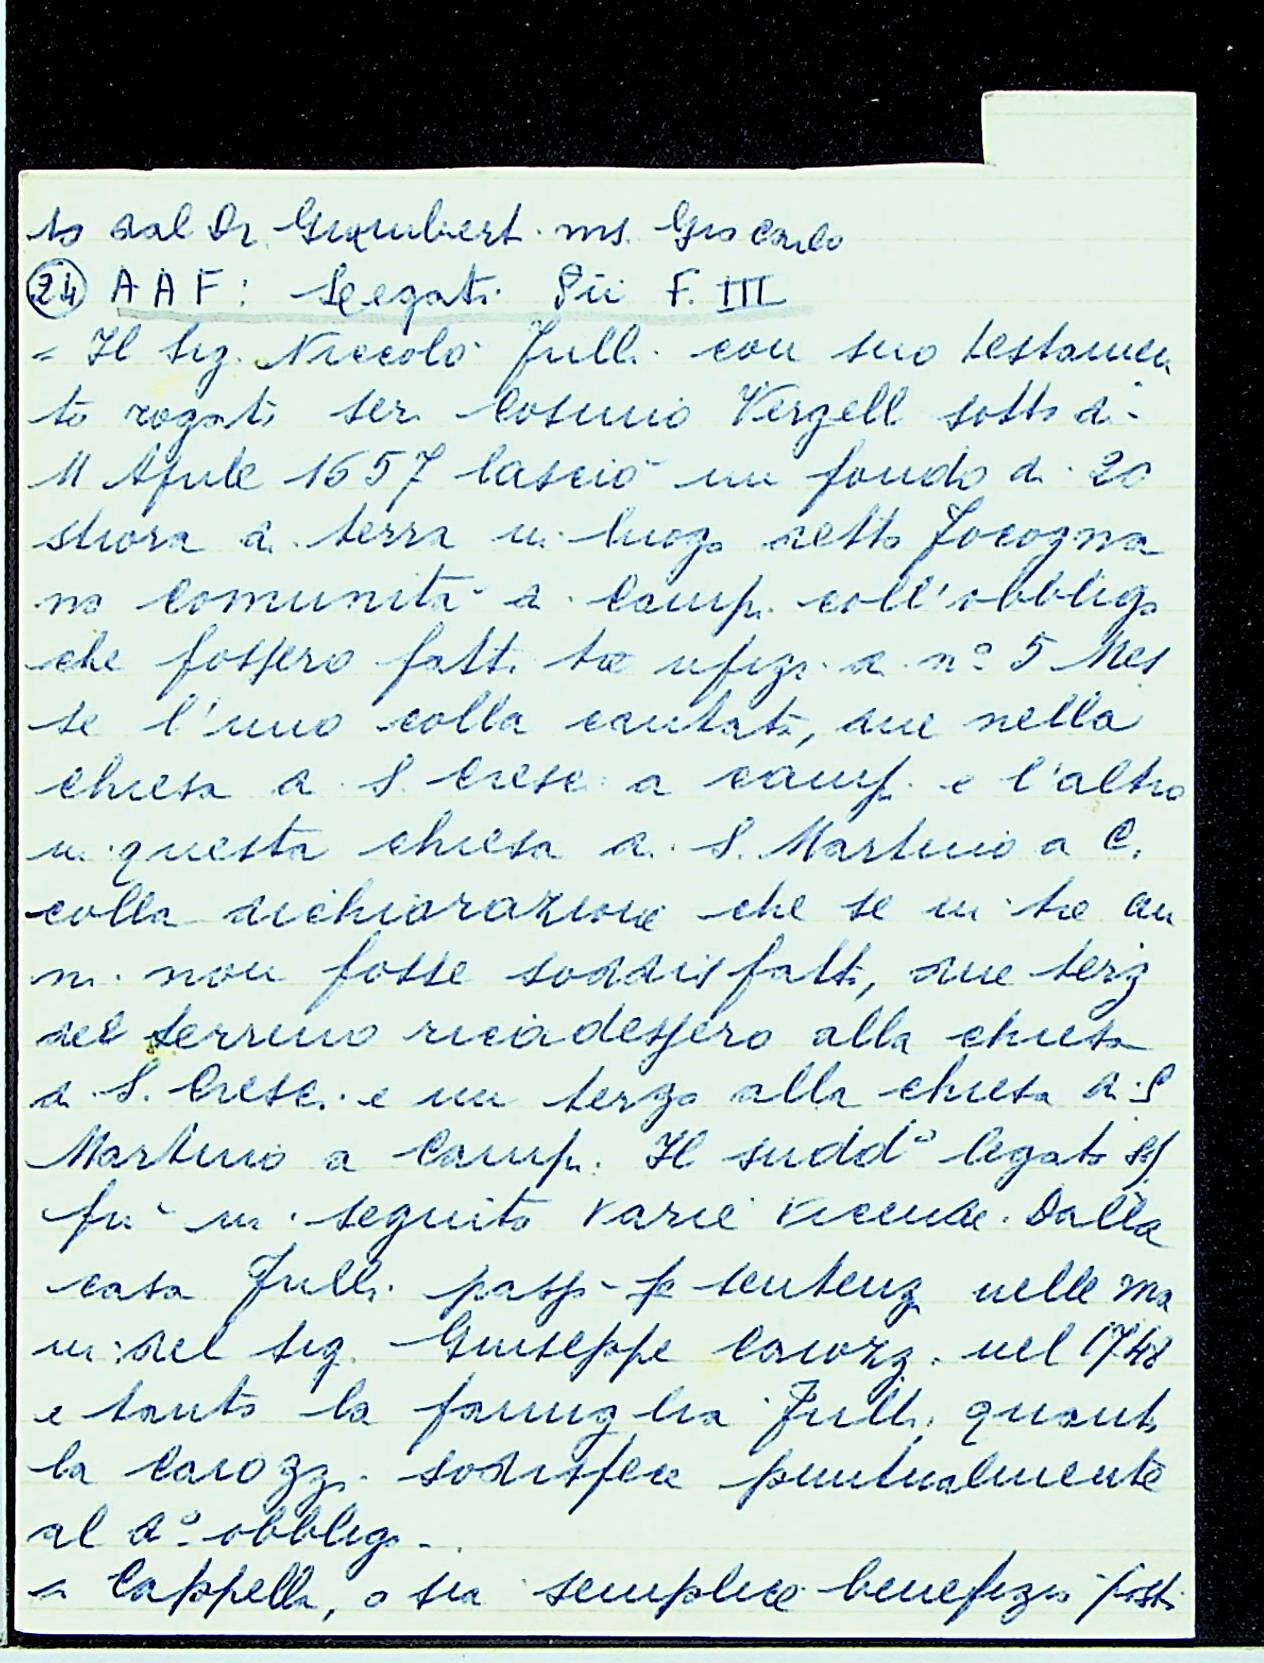 to dal Dr. Gixumbert. ms. Gio Carlo
24 AAF: Legati Pii F. III
= Il Sig. Niccolò Julli con suo testamen
to rogato ser Cosimo Vergelli sotto dì
11 Aprile 1657 lasciò un fondo di 20
stiora di terra in luogo detto Focogna
no Comunità di Camp. coll'obbligo
che fossero fatti tre ufizi di n° 5 Mes
se l'uno colla cantata, due nella
chiesa di S. Cresci a Camp. e l'altro
in questa chiesa di S. Martino a C.
colla dichiarazione che se in tre an
ni non fosse soddisfatto, due terzi
del terreno ricadessero alla chiesa
di S. Cresci e un terzo alla chiesa di S
Martino a Camp. Il sudd° legato
fu in seguito varie vicende. Dalla
casa Julli passò p sentenza nelle ma
ni del sig. Giuseppe Carozzi nel 1748
e tanto la famiglia Julli, quanto
la Carozzi sodisfece puntualmente
al d° obbligo.
= Cappella, o sia semplice benefizio posto